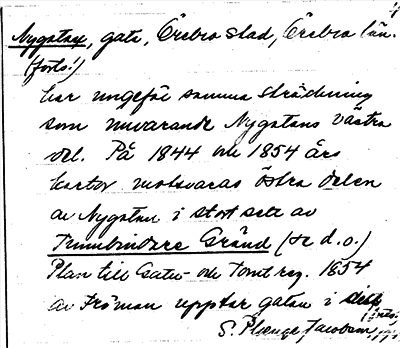 Nygatan, gata, Örebro stad, Örebro län.
(forts.)
har ungefär samma sträckning
som nuvarande Nygatans västra
del. På 1844 och 1854 års
kartor motsvaras östra delen
av Nygatan i stort sett av
Tunnbindare Gränd (se d.o.)
Plan till Gatu- och Tomtreg. 1854
av Fröman upptar gatan i sin
(forts.)
S. Plænge Jacobson